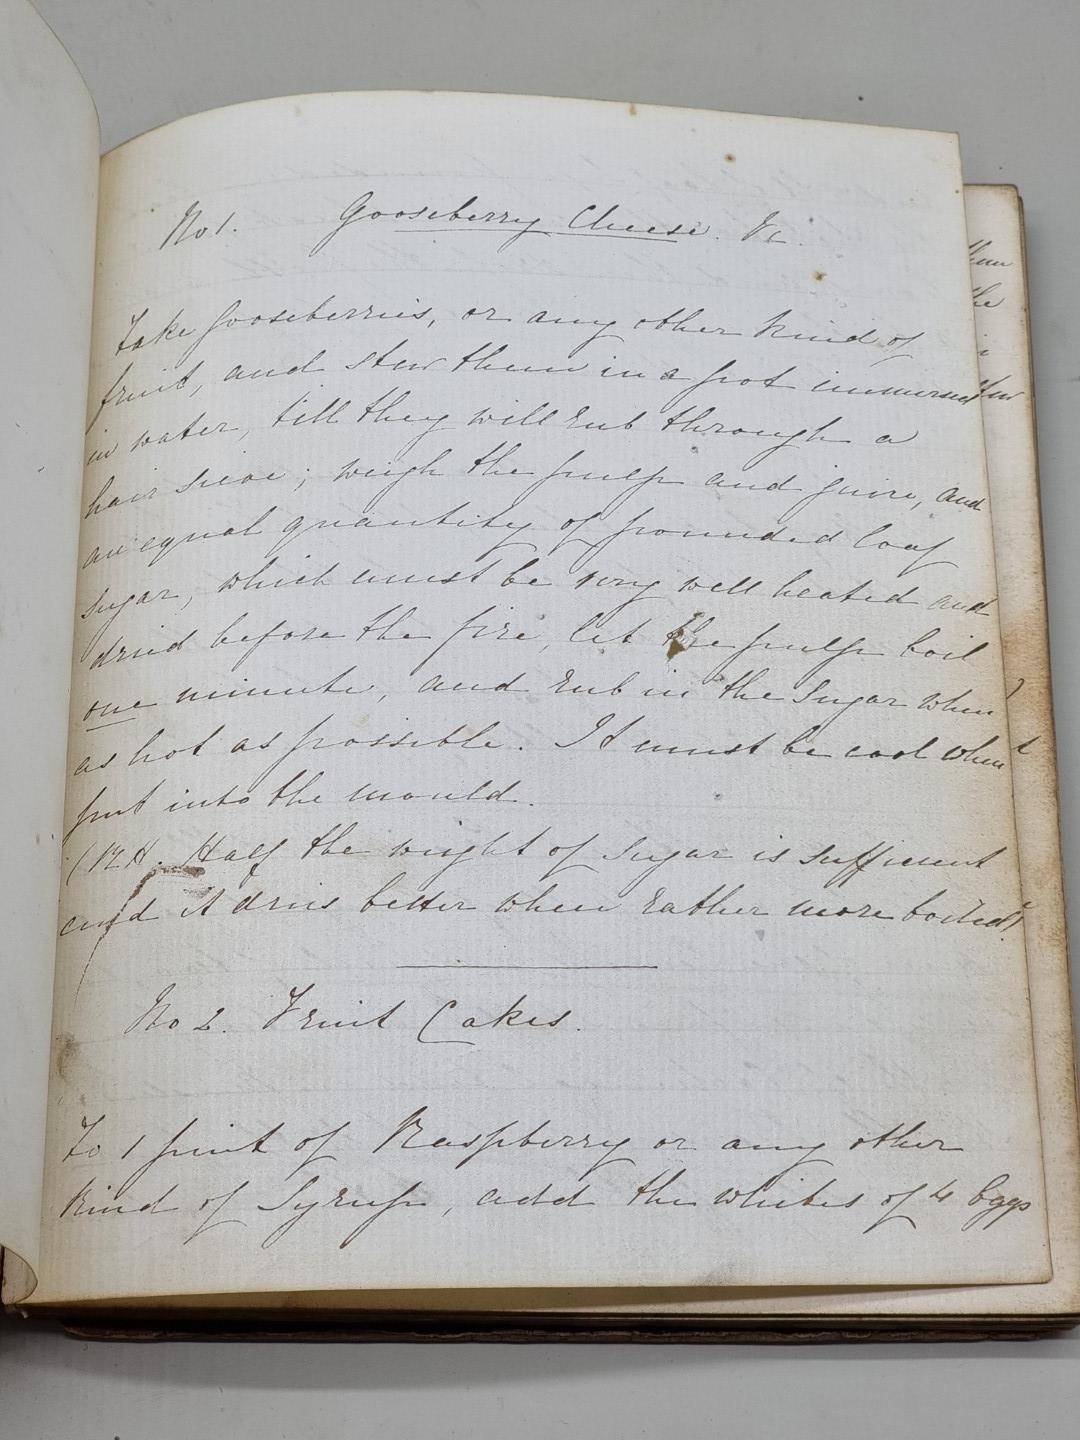 No 1. Gooseberry Cheese. &c.
Take Gooseberries, or any other kind of
fruit, and stew them in a pot immersed
in water, till they will rub through a
hair sieve; weigh the pulp and juice, and
an equal quantity of pounded loaf
sugar, which must be very well heated and
dried before the fire, let the pulp boil
one minute, and rub in the sugar when
as hot as possible. It must be cool when
put into the mould.
Half the weight of sugar is sufficient
and it dries better when rather more boiled)
No 2. Fruit Cakes.
To 1 pint of Raspberry or any other
kind of Syrup, add the whites of 4 Eggs
them
the